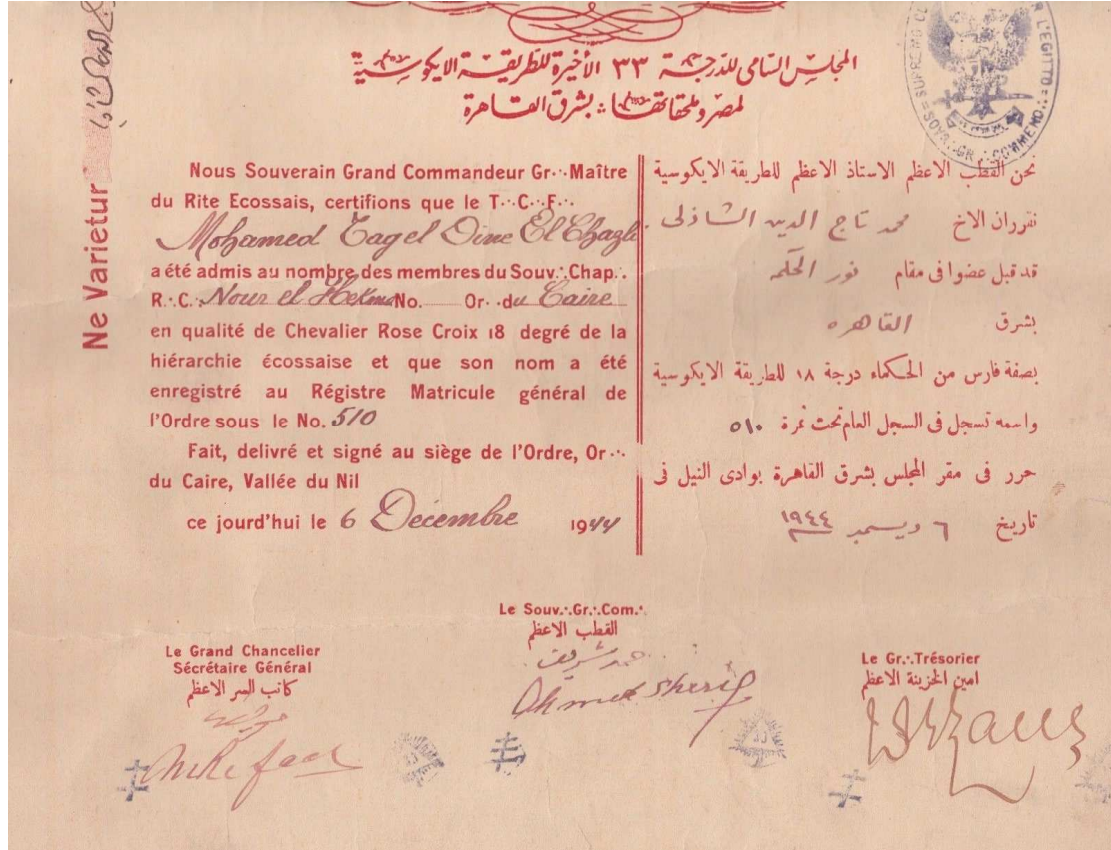 المجلس السامى للدرجة ٣٣ الأخيرة للطريقة الايكوسية
لمصر وملحقاتها ∴ بشرق القاهرة
SUPREMO L'EGITTO
SOVR∴ GR∴ COMMEND∴
Ne Varietur
Nous Souverain Grand Commandeur Gr∴Maître
du Rite Ecossais, certifions que le T∴C∴F∴
Mohamed Tag el Dine El Chazli
a été admis au nombre des membres du Souv∴Chap∴
R∴C∴ Nour el Hekma No. Or∴du Caire
en qualité de Chevalier Rose Croix 18 degré de la
hiérarchie écossaise et que son nom a été
enregistré au Régistre Matricule général de
l'Ordre sous le No. 510
Fait, delivré et signé au siège de l'Ordre, Or∴
du Caire, Vallée du Nil
ce jourd'hui le 6 Decembre 1944
نحن القطب الاعظم الاستاذ الاعظم للطريقة الايكوسية
نقرران الاخ محمد تاج الدين الشاذلى
قد قبل عضوا فى مقام نور الحكمه
بشرق القاهره
بصفة فارس من الحكماء درجة ١٨ للطريقة الايكوسية
واسمه تسجل فى السجل العام تحت نمرة ٥١٠
حرر فى مقر المجلس بشرق القاهرة بوادى النيل فى
تاريخ ٦ ديسمبر ١٩٤٤
Le Souv∴Gr∴Com∴
القطب الاعظم
احمد شريف
Ahmed Sherif
Le Grand Chancelier
Sécrétaire Général
كاتب السر الاعظم
Le Gr∴Trésorier
امين الخزينة الاعظم